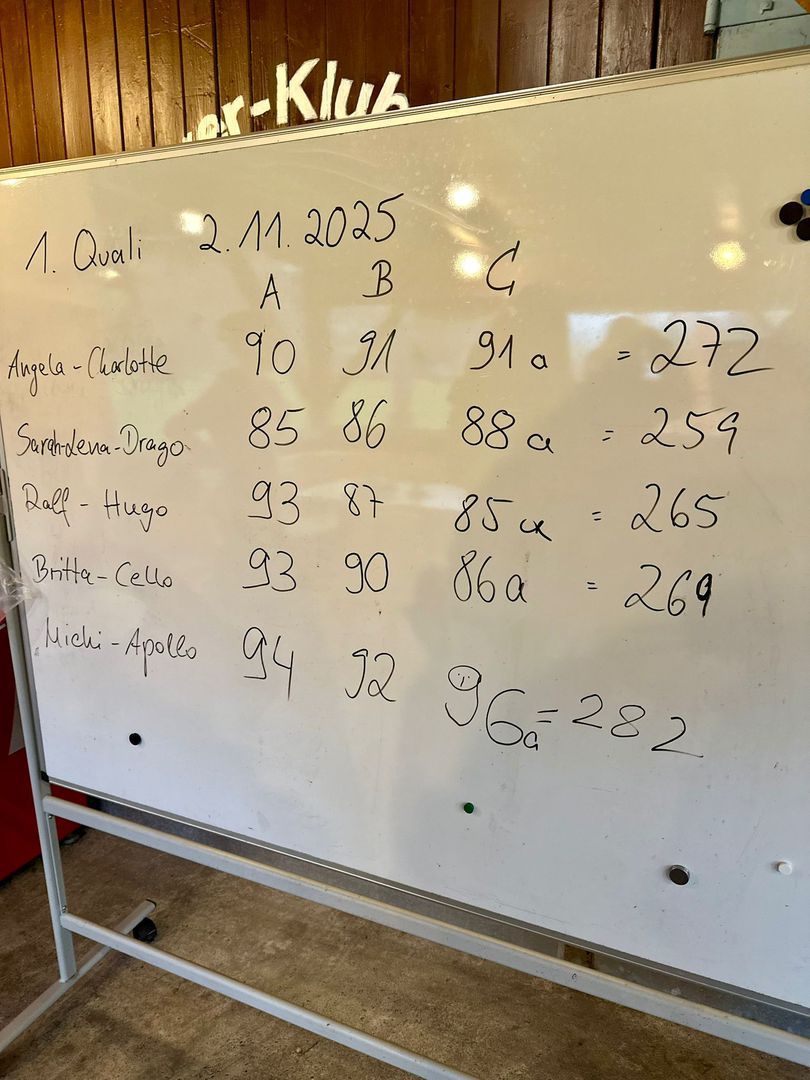 er-Klub
1. Quali 2.11.2025
A B C
Angela-Charlotte 90 91 91a = 272
Sarah-Lena-Drago 85 86 88a = 259
Ralf - Hugo 93 87 85a = 265
Britta-Cello 93 90 86a = 269
Michi-Apollo 94 92 96a = 282